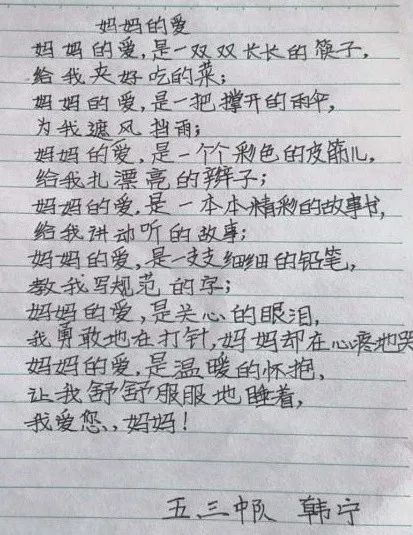 妈妈的爱
妈妈的爱,是一双双长长的筷子,
给我夹好吃的菜;
妈妈的爱,是一把撑开的雨伞,
为我遮风挡雨;
妈妈的爱,是一个个彩色的皮筋儿,
给我扎漂亮的辫子;
妈妈的爱,是一本本精彩的故事书,
给我讲动听的故事;
妈妈的爱,是一支支细细的铅笔,
教我写规范的字;
妈妈的爱,是关心的眼泪,
我勇敢地在打针,妈妈却在心疼地哭
妈妈的爱,是温暖的怀抱,
让我舒舒服服地睡着,
我爱您,妈妈!
五三中队 韩宁